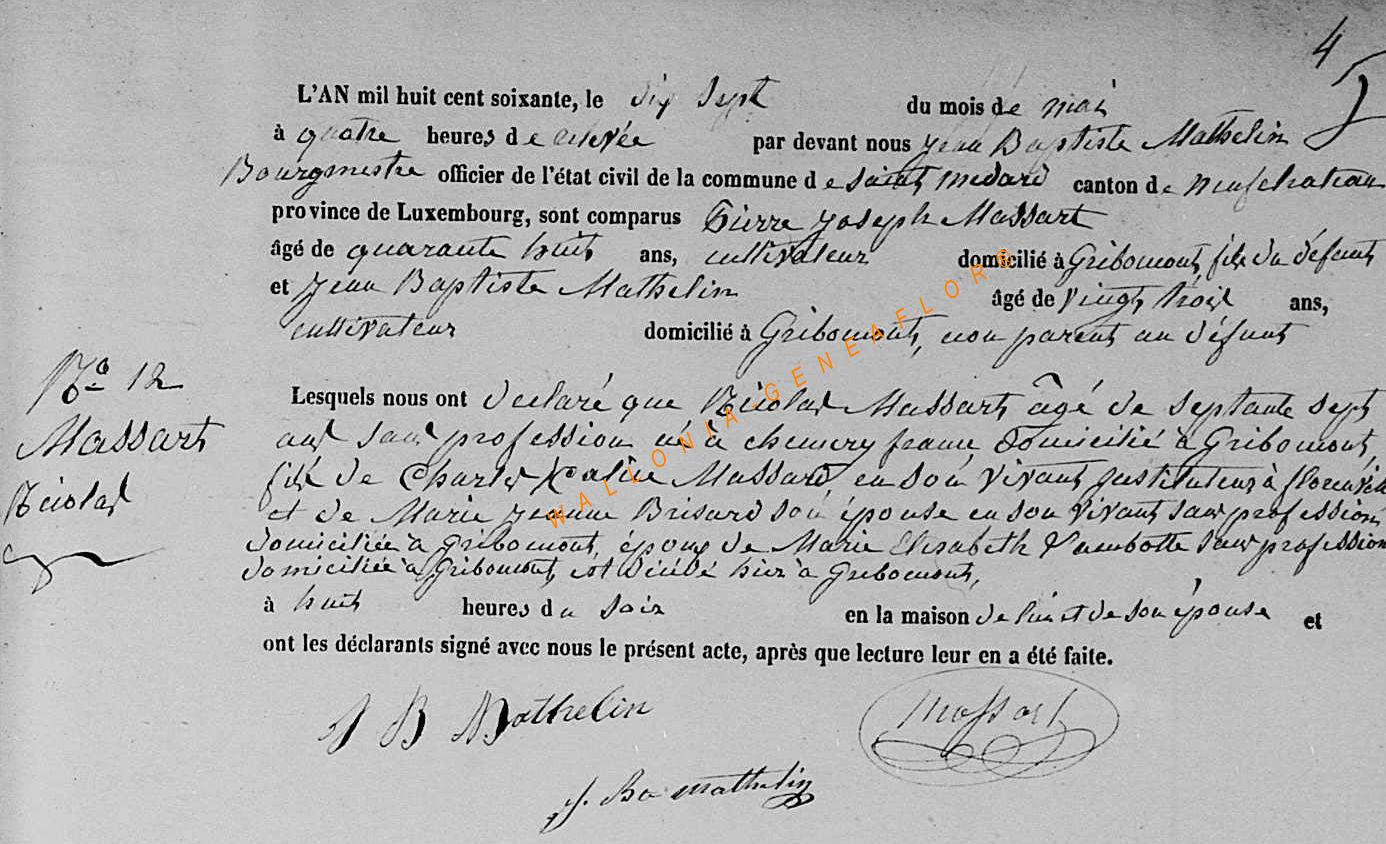 4
5
L'AN mil huit cent soixante, le dix Sept du mois de mai
à quatre heures de relevée par devant nous Jean Baptiste Mathelin
Bourgmestre officier de l'état civil de la commune de saint medard canton de neufchateau
province de Luxembourg, sont comparus Pierre Joseph Massart
âgé de quarante huit ans, cultivateur domicilié à Gribomont, fils du défunt
et Jean Baptiste Mathelin âgé de vingt trois ans,
cultivateur domicilié à Gribomont, non parent au défunt
No 12
Massart
Nicolas
Lesquels nous ont declaré que Nicolas Massart âgé de septante sept
ans sans profession né à chemery france Domicilié à Gribomont,
fils de Charles Massard en son vivant justituteur à florenville
et de Marie Jeanne Brisard son épouse en son vivant sans profession
domiciliée à Gribomont, époux de Marie Elisabeth Lambotte sans profession
domiciliée à Gribomont, est décédé hier à Gribomont,
à huit heures du soir en la maison de lui et de son épouse et
ont les déclarants signé avec nous le présent acte, après que lecture leur en a été faite.
J B Mathelin
Massart
J. Bte mathelin
WALLONIA-GENEAFLOR©